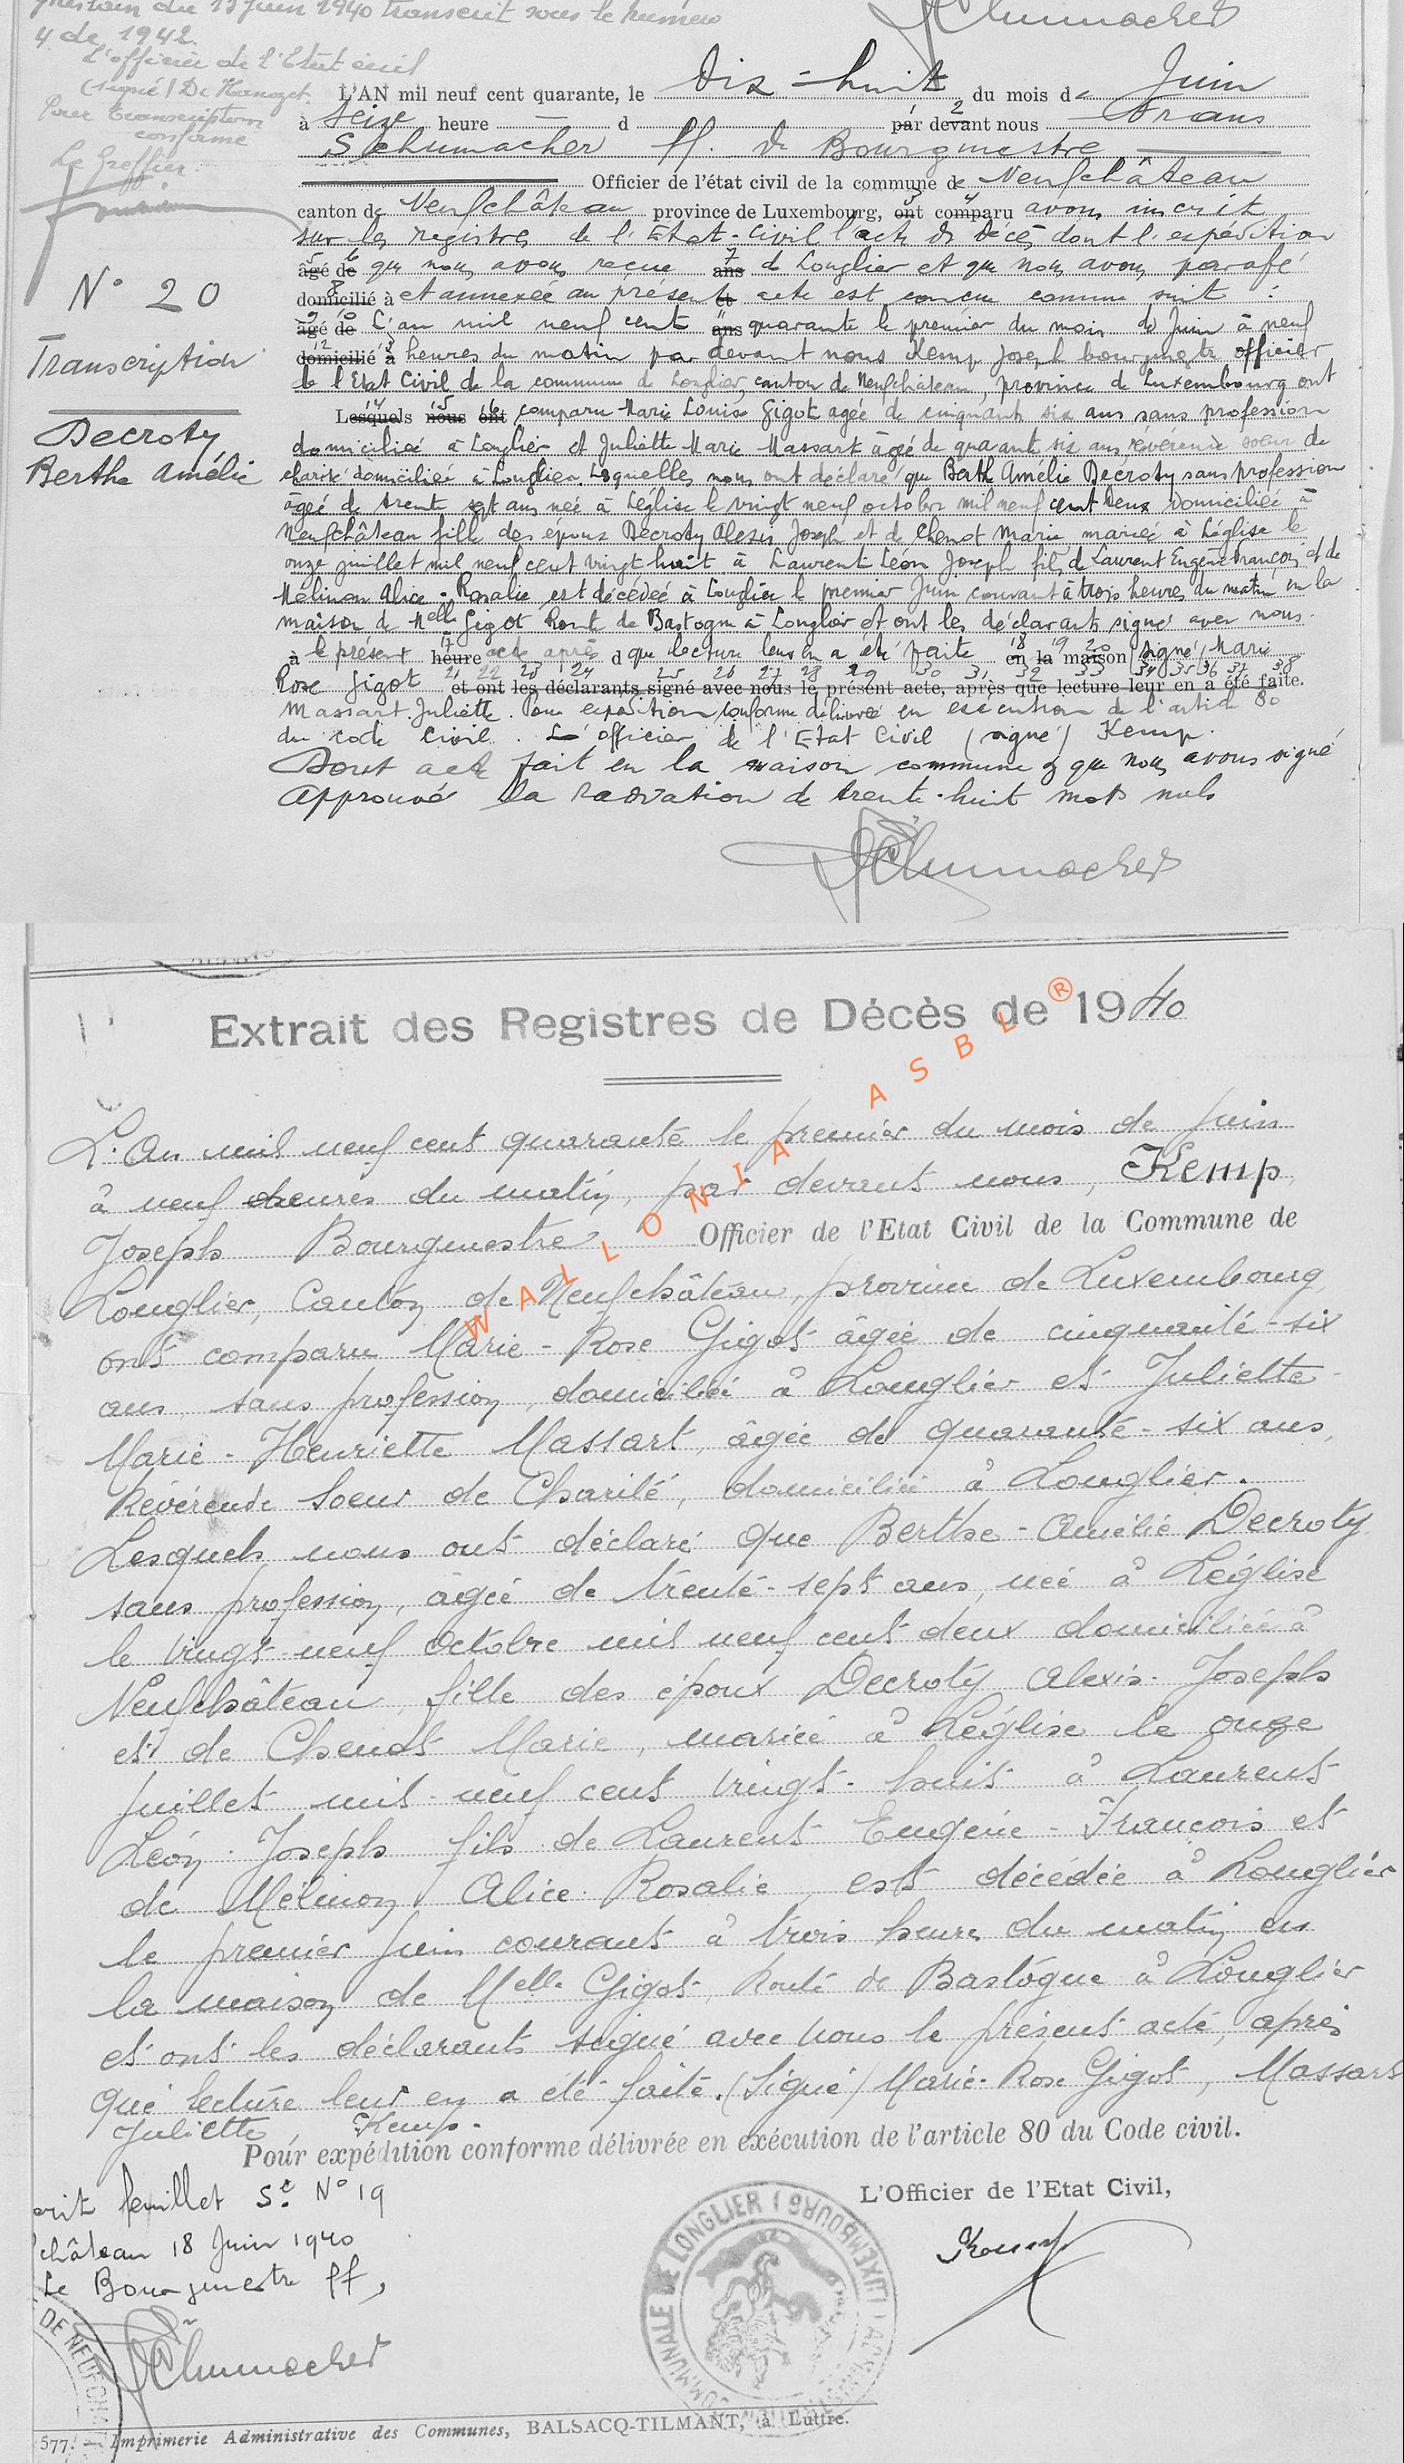 du 13 juin 1940 transcrit sous le numéro
4 de 1942.
L'officier de l'Etat civil
(signé) De
Pour transcription
conforme
Le Greffier
Schumacher
L'AN mil neuf cent quarante, le dix-huit du mois de Juin
à seize heure d par devant nous Orans
Schumacher ff. de Bourgmestre
Officier de l'état civil de la commune de Neufchâteau
canton de Neufchâteau province de Luxembourg, ont comparu avons inscrit
sur les registres de l'Etat-Civil l'acte de décès dont l'expédition
âgé de que nous avons reçue ans de Longlier et que nous avons parafé
domicilié à et annexée au présent et acte est conçue comme suit :
âgé de L'an mil neuf cent ans quarante le premier du mois de Juin à neuf
domicilié à heures du matin par devant nous Kemp Joseph bourgmestre officier
de l'Etat Civil de la commune de Longlier, canton de Neufchâteau, province de Luxembourg ont
Lesquels nous ont comparu Marie Louise Gigot agée de cinquante six ans sans profession
domiciliée à Longlier et Juliette Marie Massart âgée de quarante six ans, révérende soeur de
charité domiciliée à Longlier. Lesquelles nous ont déclaré que Berthe Amélie Decroty sans profession
âgée de trente sept ans née à Léglise le vingt neuf octobre mil neuf cent deux domiciliée à
Neufchâteau fille des époux Decroty Alexis Joseph et de Chenot Marie mariée à Léglise le
onze juillet mil neuf cent vingt huit à Laurent Léon Joseph fils de Laurent Eugène François et de
Mélinon Alice-Rosalie est décédée à Longlier le premier Juin courant à trois heures du matin en la
maison de Melle Gigot Route de Bastogne à Longlier et ont les déclarants signé avec nous
à le présent heure acte après d que lecture leur en a été faite en la maison (signé) Marie
Rose Gigot et ont les déclarants signé avec nous le présent acte, après que lecture leur en a été faite.
Massart Juliette. Pour expédition conforme délivrée en exécution de l'article 80
du code Civil. L'officier de l'Etat Civil (signé) Kemp.
Dont acte fait en la maison commune et que nous avons signé
Approuvé la radiation de trente-huit mots nuls
Schumacher
N° 20
Transcription
Decroty
Berthe Amélie
Extrait des Registres de Décès de 1940
L'An mil neuf cent quarante le premier du mois de Juin
à neuf heures du matin, par devant nous, Kemp
Joseph Bourgmestre Officier de l'Etat Civil de la Commune de
Longlier, Canton de Neufchâteau, province de Luxembourg,
ont comparu Marie-Rose Gigot âgée de cinquante-six
ans, sans profession, domiciliée à Longlier et Juliette-
Marie-Henriette Massart, âgée de quarante-six ans,
Révérende Soeur de Charité, domiciliée à Longlier.
Lesquels nous ont déclaré que Berthe-Amélie Decroty
sans profession, âgée de trente-sept ans, née à Léglise
le vingt-neuf Octobre mil neuf cent deux domiciliée à
Neufchâteau, fille des époux Decroty Alexis-Joseph
et de Chenot Marie, mariée à Léglise le onze
Juillet mil-neuf cent vingt-huit à Laurent
Léon-Joseph fils de Laurent Eugène-François et
de Mélinon Alice-Rosalie, est décédée à Longlier
le premier Juin courant à trois heure du matin, en
la maison de Melle Gigot, Route de Bastogne à Longlier
et ont les déclarants signé avec nous le présent acte, après
que lecture leur en a été faite. (Signé) Marie-Rose Gigot, Massart
Juliette, Kemp.
Pour expédition conforme délivrée en exécution de l'article 80 du Code civil.
L'Officier de l'Etat Civil,
Kemp
feuillet S. N° 19
château 18 Juin 1940
Le Bourgmestre ff,
Schumacher
DE NEUFCH
COMMUNALE DE LONGLIER (LUXEMBOURG)
577. — Imprimerie Administrative des Communes, BALSACQ-TILMANT, à Luttre.
WALLONIA ASBL ®